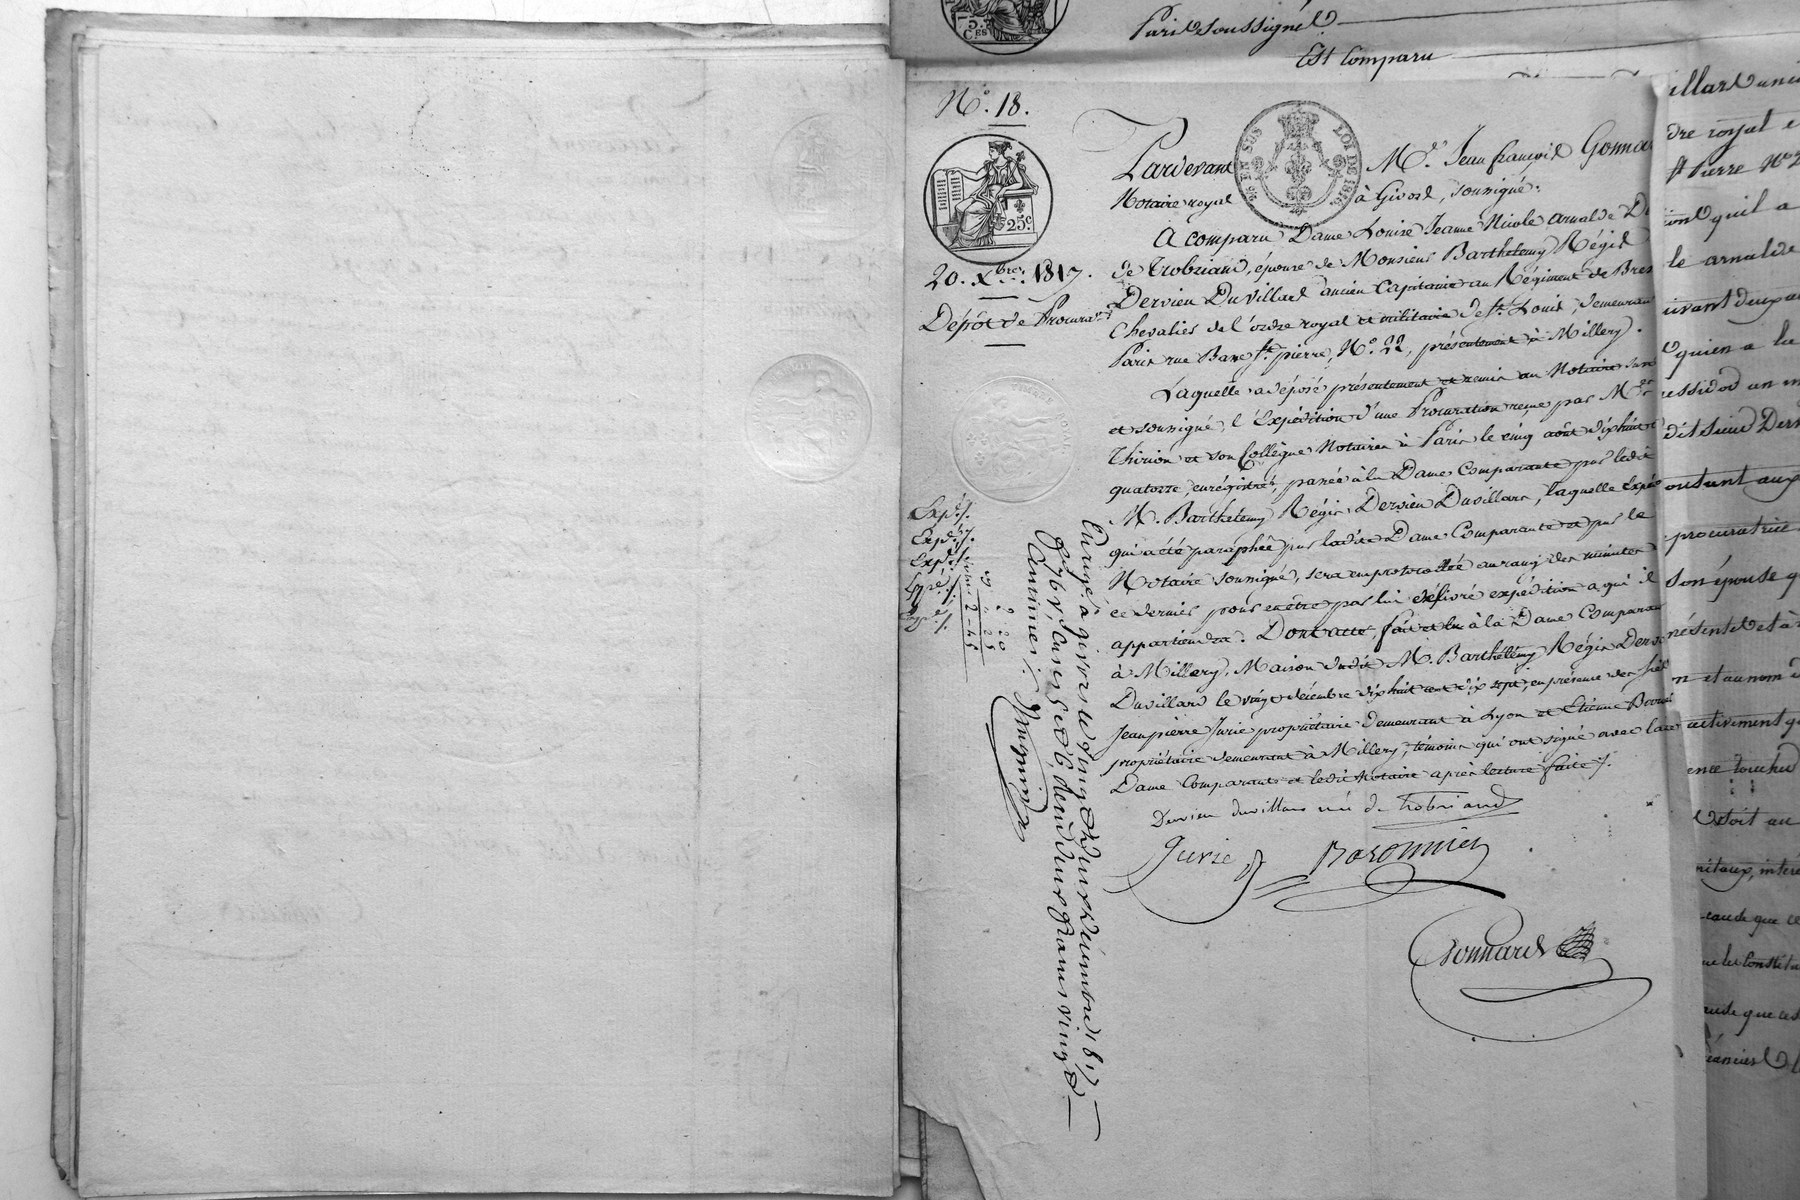 Paris soussigné
Est Comparu
N.° 18.
75.
C.ES
25.c
EN SUS
LOI DE 1816.
20. X.bre 1817.
Dépôt de Procura.on
Pardevant M.e Jean françois Gonna
Notaire royal à Givors, soussigné.
A comparu Dame Louise Jeanne Nicole arnal de D
de Trobriand, épouse de Monsieur Barthelemy Régis
Dervieu Duvillard ancien Capitaine au Régiment de Bres
Chevalier de l'ordre royal et militaire de St. Louis, demeurant
Paris rue Basse St. pierre, N.° 22, présentement à Millery.
Laquelle a déposé présentement et remis au Notaire
et soussigné, l'Expédition d'une Procuration reçue par M.e
Thirion et son Collègue Notaires à Paris le cinq août dix huit
quatorze, enregistrée, passée à la Dame Comparante par ledit
M. Barthelemy Régis Dervieu Duvillard, laquelle expéd
qui a été paraphée par ladite Dame Comparante et par le
Notaire soussigné, sera emprotocollée au rang des minutes
ce dernier pour en être par lui délivré expédition a qui il
appartiendra. Dont acte, fait et lu à la Dame Comparan
à Millery, Maison dudit M. Barthélémy Régis Dervi
Duvillard le vingt décembre dix huit cent dix sept, en présence des
Jean pierre Jurie propriétaire demeurant à Lyon et Etienne
propriétaire demeurant à Millery, témoins qui ont signé avec la
Dame Comparante et ledit Notaire après lecture faite.
Dervieu duvillard née de Trobriand
Jurie
Baronnier
Gonnard
Exp.
Exp.
Exp.
2 20
25
2-45
Enregé. à givors le vingt deux décembre 1817
f° 76 v°, Case 5 et 6, deux francs vingt
Centimes.
illard anci
dre royal e
St Pierre N° 2
qu'il a
le arnal de
uivant
quien a lu
essidor an
dit sieur Derv
procuratrice
son épouse q
présente et à
n et au nom d
activement q
ence touchu
soit au
caude que ce
que les Constitu
caude que ces